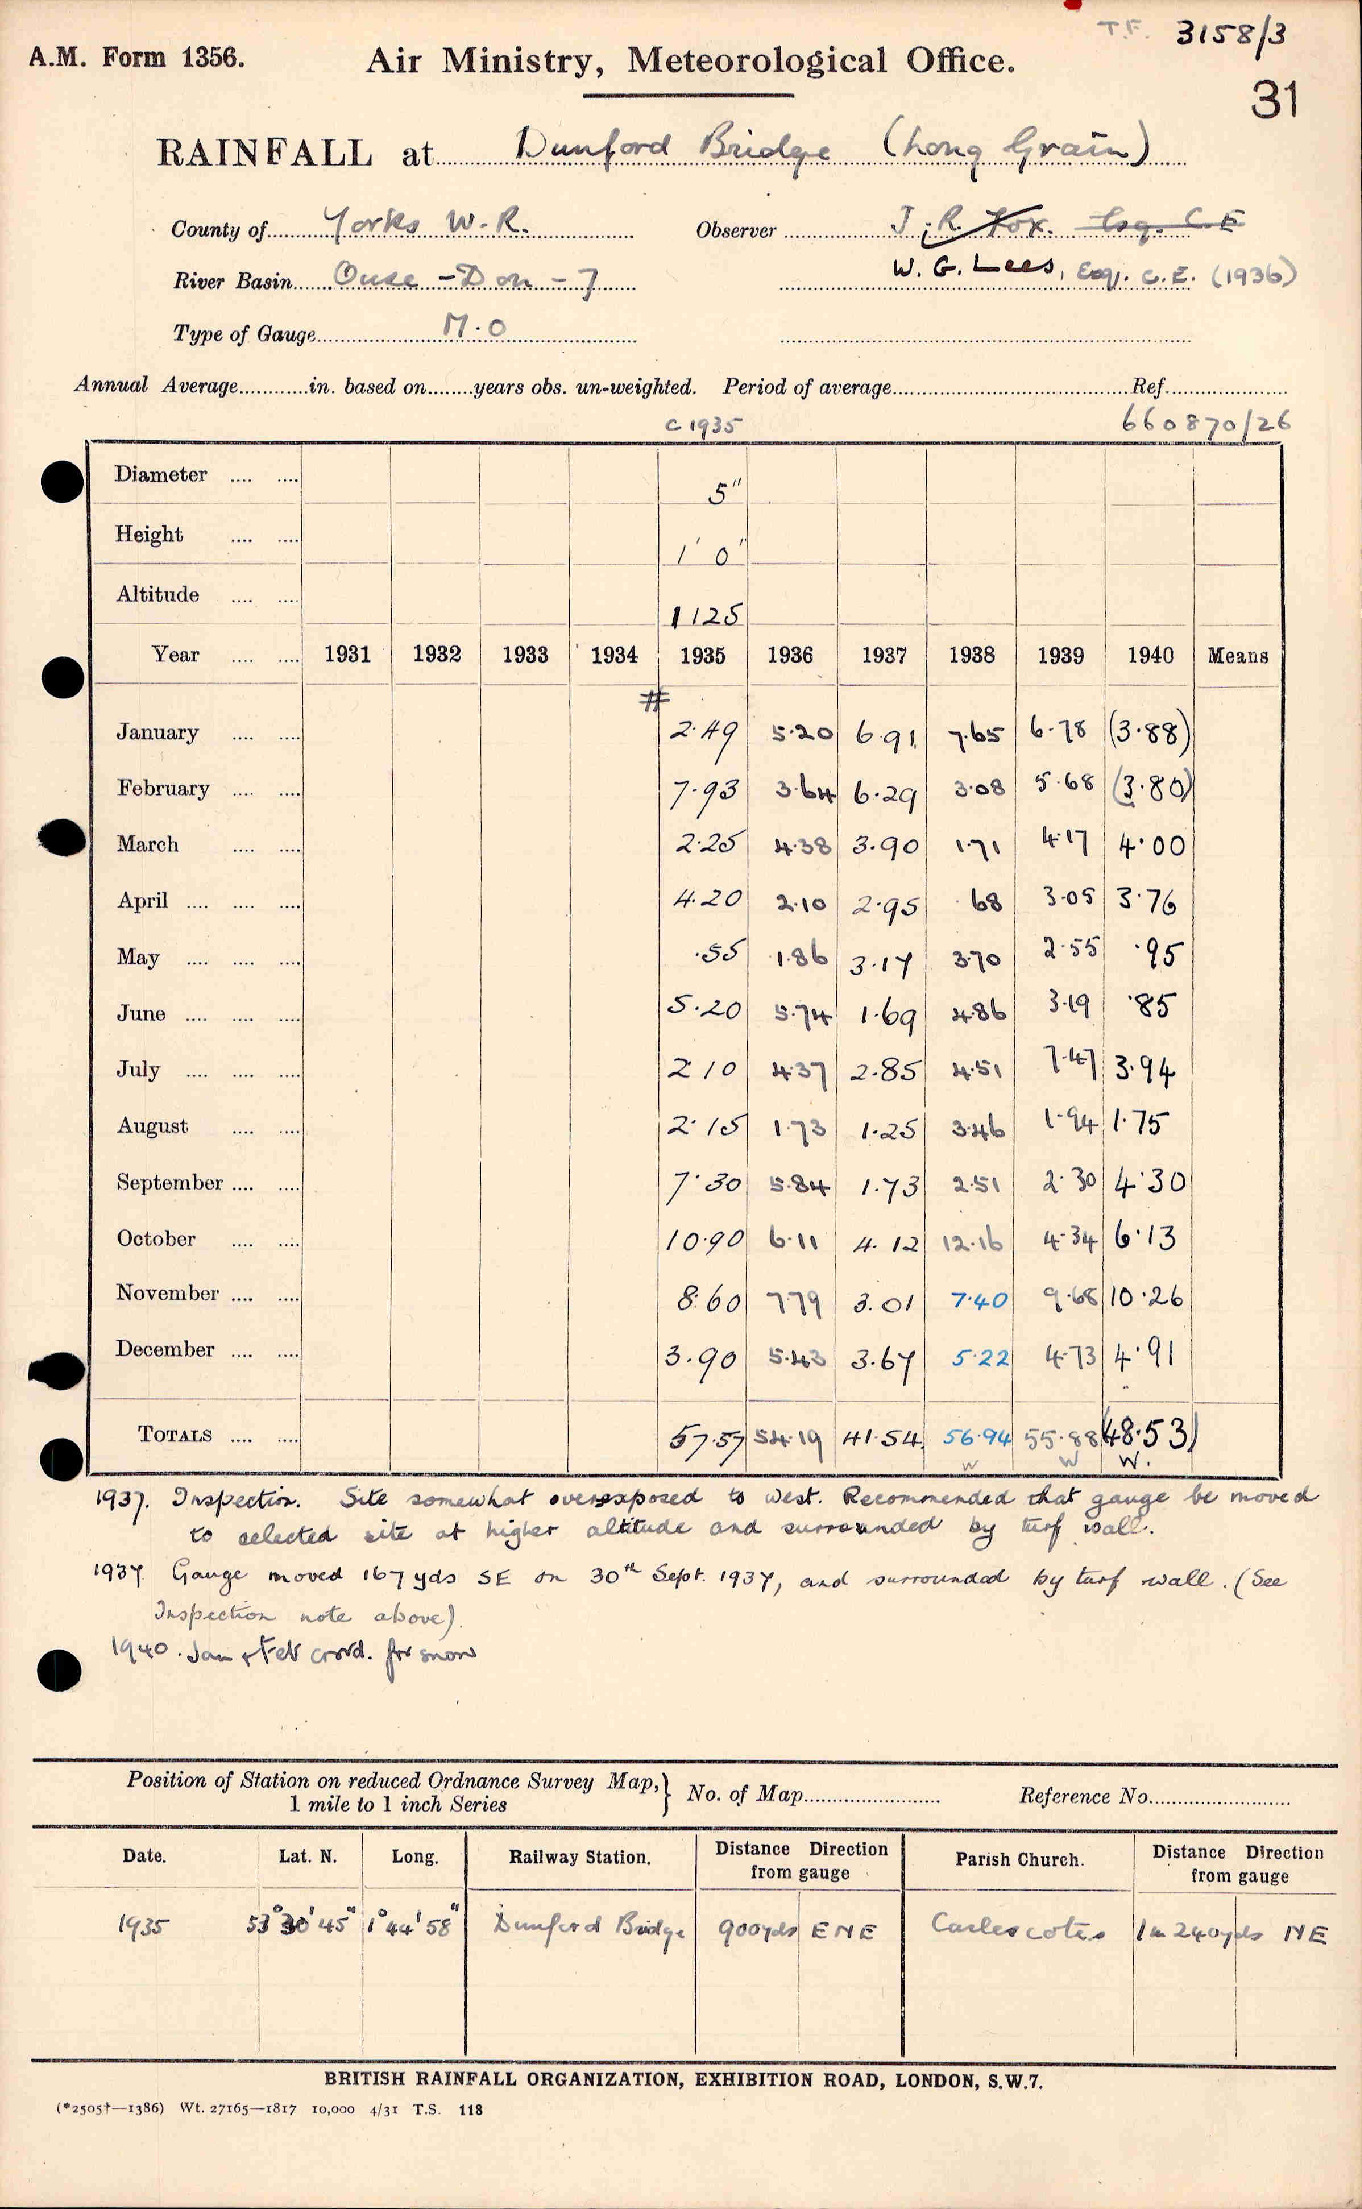 T.F. 3158/3
A.M. Form 1356. Air Ministry, Meteorological Office.
31
RAINFALL at Dunford Bridge (Long Grain)
County of Yorks W.R. Observer J. R. Fox. Esq. C.E
River Basin Ouse - Don - 7 W. G. Lees, Esq. C.E. (1936)
Type of Gauge M.O
Annual Average in. based on years obs. un-weighted. Period of average Ref.
c 1935 660870/26
Diameter 5"
Height 1' 0"
Altitude 1125
Year 1931 1932 1933 1934 1935 1936 1937 1938 1939 1940 Means
#
January 2.49 5.20 6.91 7.65 6.78 (3.88)
February 7.93 3.64 6.29 3.08 5.68 (3.80)
March 2.25 4.38 3.90 1.71 4.17 4.00
April 4.20 2.10 2.95 .68 3.05 3.76
May .55 1.86 3.17 3.70 2.55 .95
June 5.20 5.74 1.69 4.86 3.19 .85
July 2.10 4.37 2.85 4.51 7.47 3.94
August 2.15 1.73 1.25 3.46 1.94 1.75
September 7.30 5.84 1.73 2.51 2.30 4.30
October 10.90 6.11 4.12 12.16 4.34 6.13
November 8.60 7.79 3.01 7.40 9.68 10.26
December 3.90 5.43 3.67 5.22 4.73 4.91
TOTALS 57.57 54.19 41.54 56.94 55.88 (48.53)
W W W.
1937. Inspection. Site somewhat overexposed to west. Recommended that gauge be moved
to selected site at higher altitude and surrounded by turf wall.
1937 Gauge moved 167 yds SE on 30th Sept. 1937, and surrounded by turf wall. (See
Inspection note above)
1940. Jan & Feb corrd. for snow
Position of Station on reduced Ordnance Survey Map, } No. of Map Reference No.
1 mile to 1 inch Series
Date. Lat. N. Long. Railway Station. Distance Direction from gauge Parish Church. Distance Direction from gauge
1935 53° 30' 45" 1° 44' 58" Dunford Bridge 900yds ENE Carlecotes 1m 240yds NE
BRITISH RAINFALL ORGANIZATION, EXHIBITION ROAD, LONDON, S.W.7.
(*2505†—1386) Wt. 27165—1817 10,000 4/31 T.S. 118